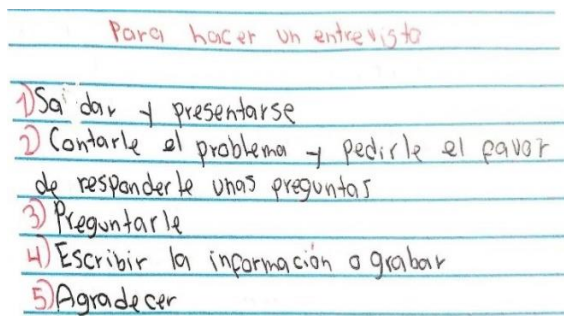 Para hacer un entrevista
1) Saludar y presentarse
2) Contarle el problema y pedirle el favor
de responderle unas preguntas
3) Preguntarle
4) Escribir la información o grabar
5) Agradecer